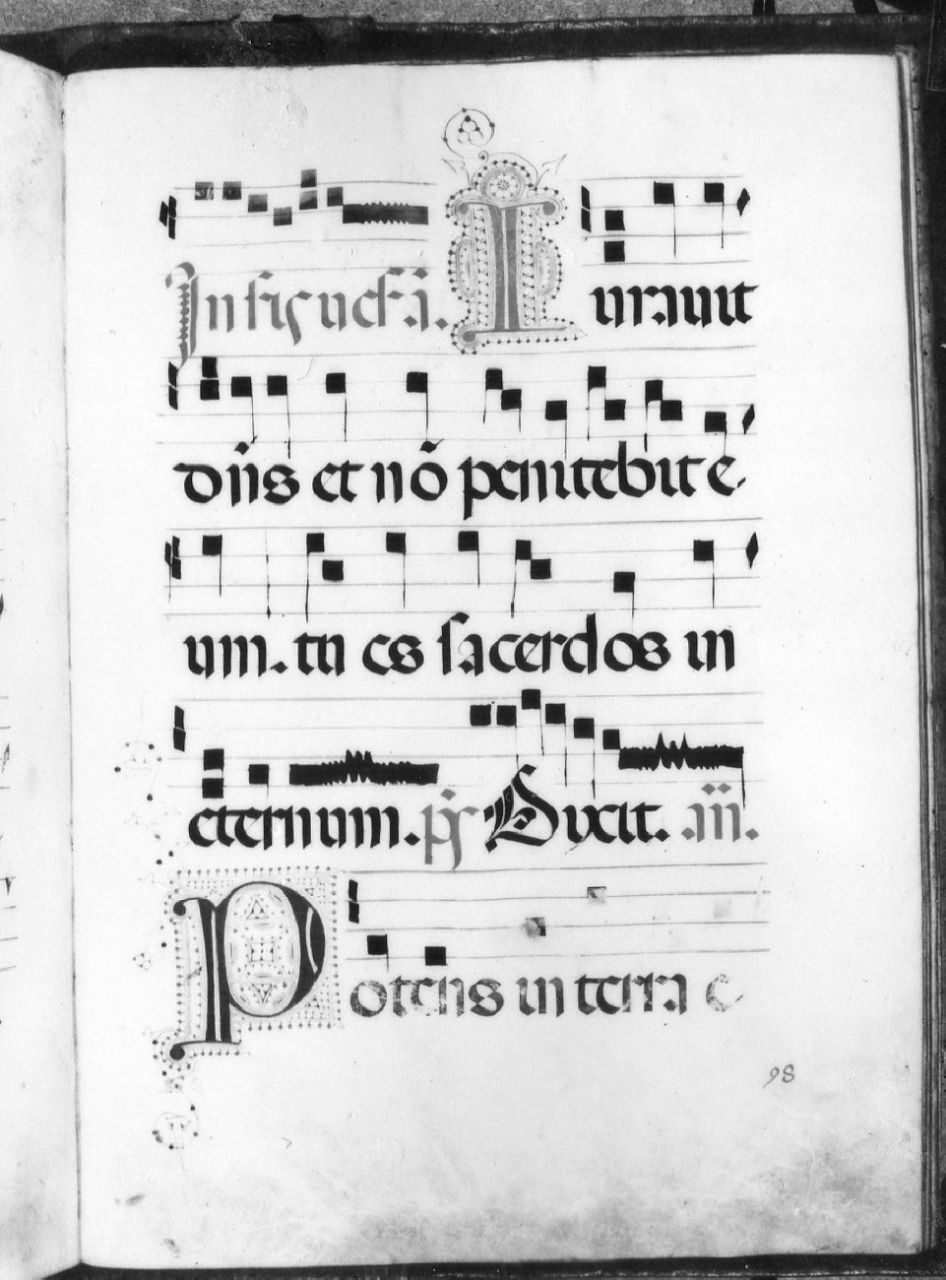 In sc̃a ucf̃a. Iurauit
dñs et nõ penitebit e
um. tu es sacerdos in
eternum. ps̃ Dixit. .iii.
Potens in terra e
98